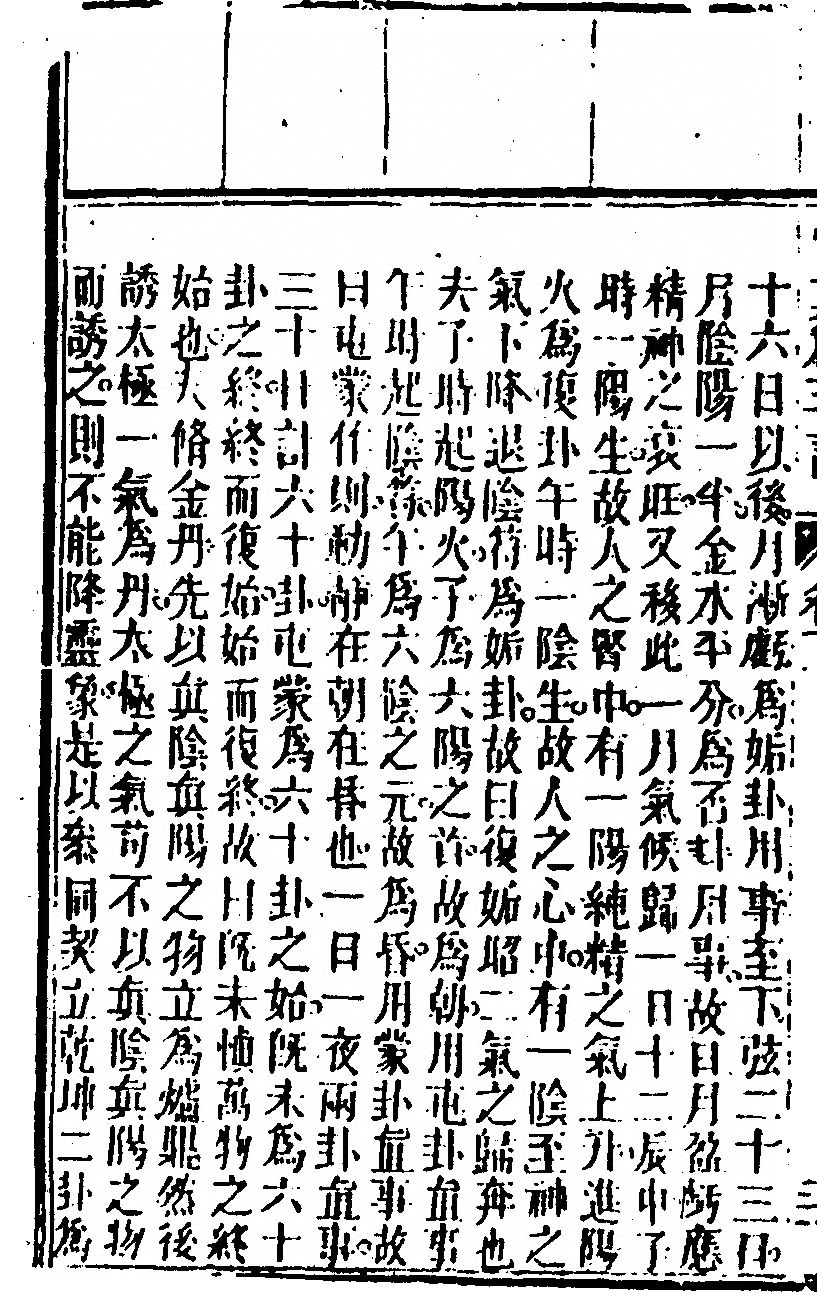 十六日以後月漸虧為姤卦用事至下弦二十三日
月陰陽一半金水平分為否卦用事故曰月盈虧應
精神之衰旺又移此一月氣候歸一日十二辰中子
時一陽生故人之腎中有一陽純精之氣上升進陽
火為復卦午時一陰生故人之心中有一陰至神之
氣下降退陰符為姤卦故曰復姤昭二氣之歸奔也
夫子時起陽火子為六陽之首故為朝用屯卦直事
午時起陰符午為六陰之元故為昏用蒙卦直事故
曰屯蒙作則動靜在朝在昏也一日一夜兩卦直事
三十日計六十卦屯蒙為六十卦之始既未為六十
卦之終終而復始始而復終故曰既未慎萬物之終
始也夫脩金丹先以眞陰眞陽之物立為爐鼎然後
誘太極一氣為丹太極之氣苟不以眞陰眞陽之物
而誘之則不能降靈象是以叅同契立乾坤二卦為